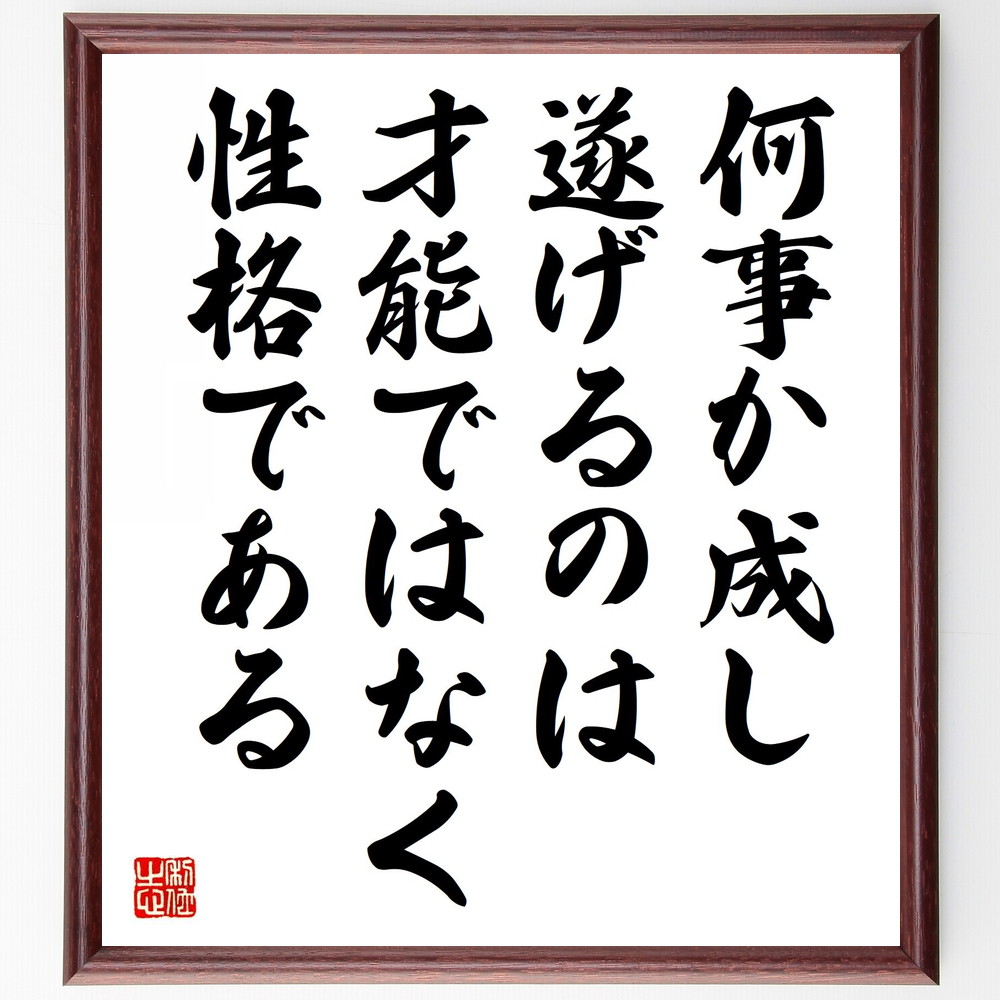 何事か成し
遂げるのは
才能ではなく
性格である